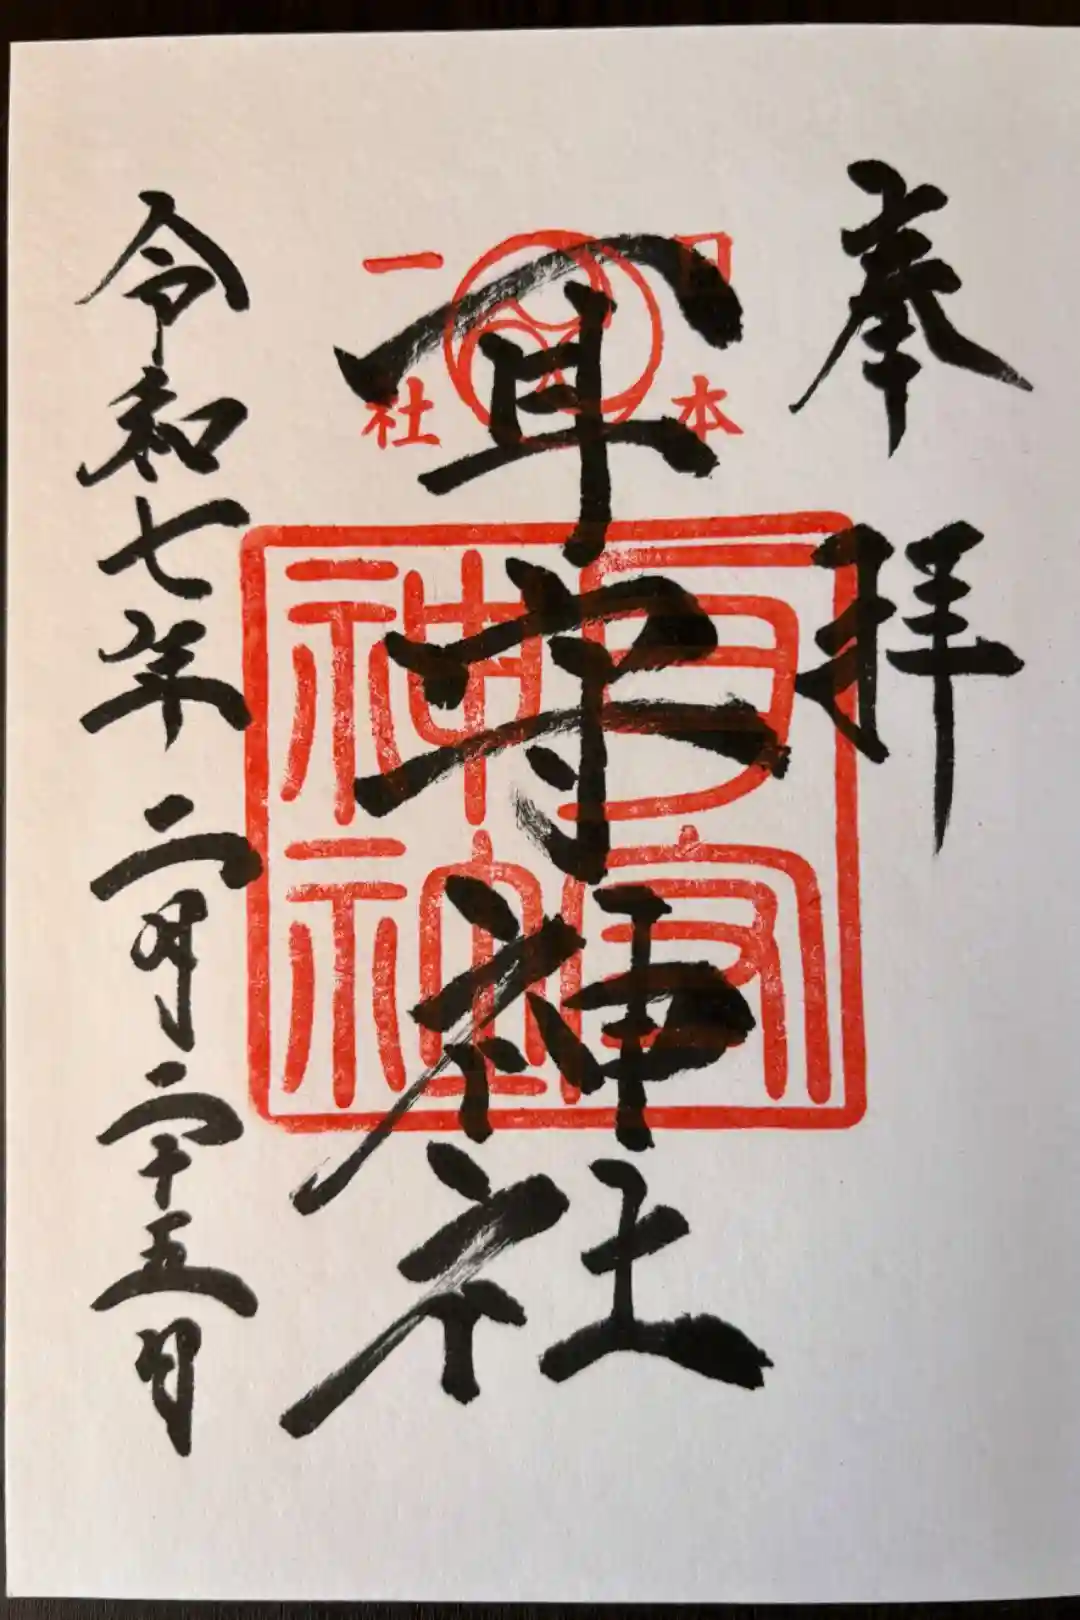 奉拝
日本一社
耳守神社
耳守神社
令和七年二月二十五日